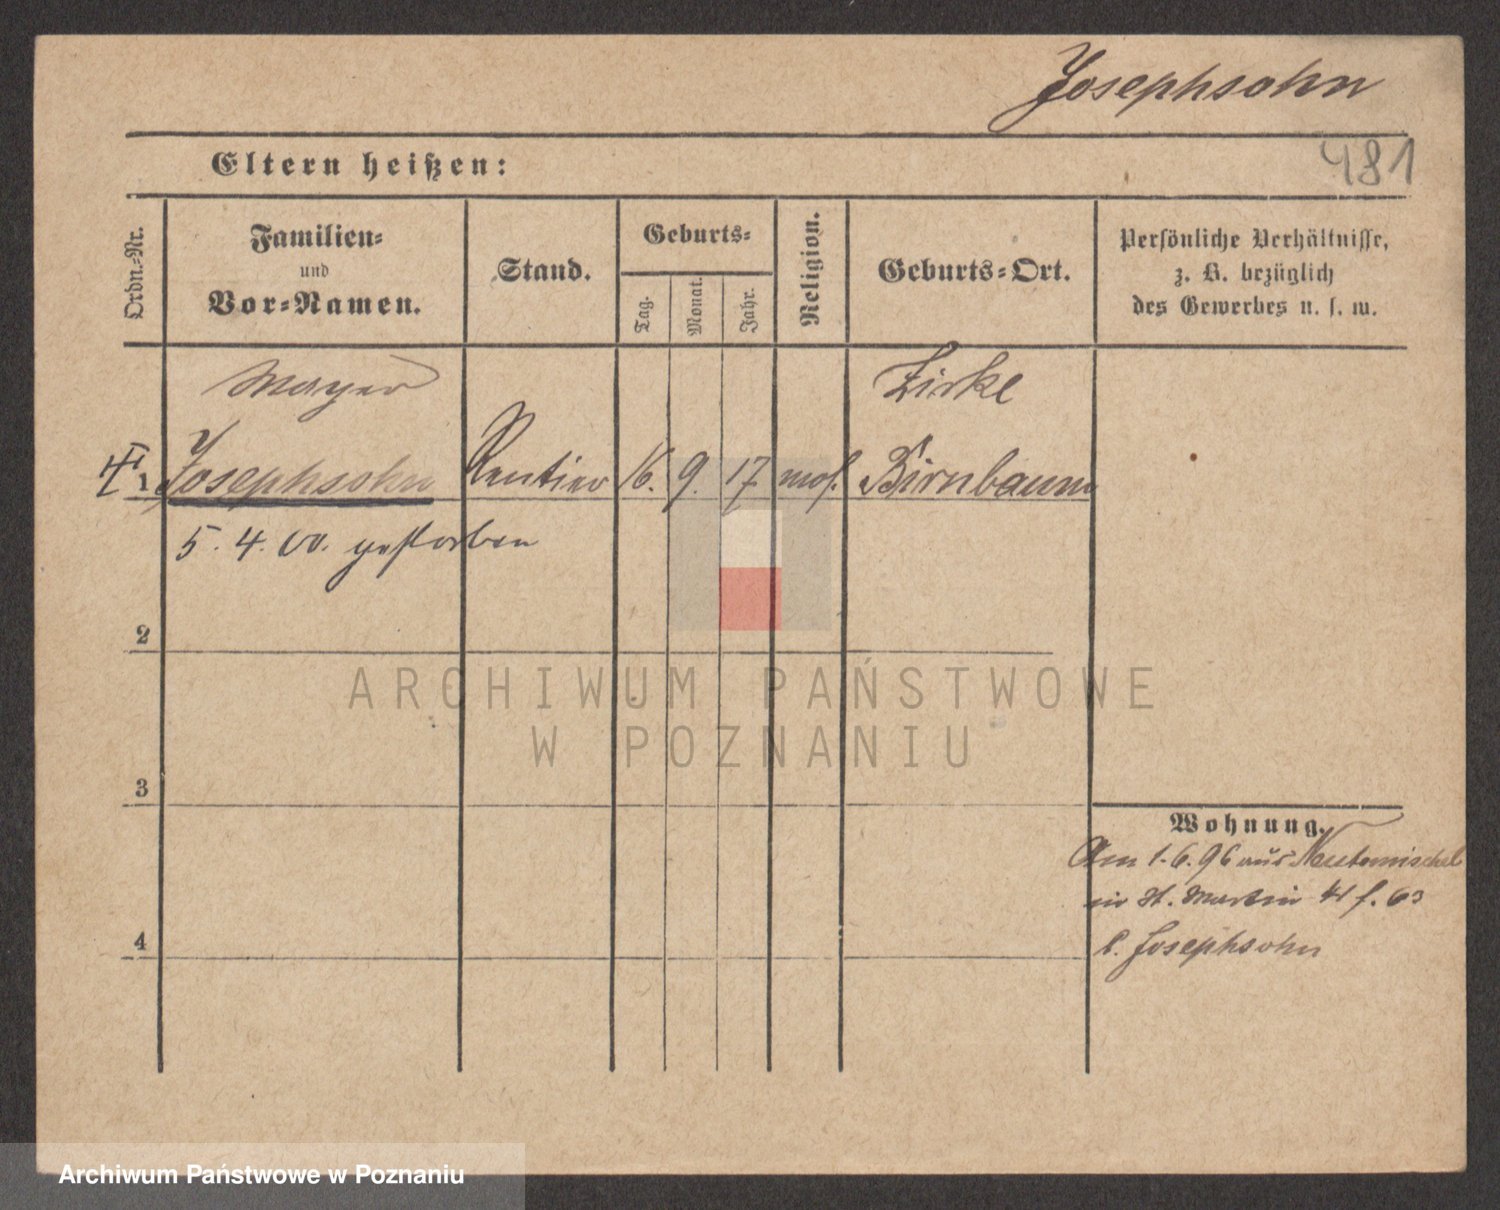 Josephsohn
481
Eltern heißen:
Ordn.-Nr.
Familien-
und
Vor-Namen.
Stand.
Geburts-
Tag.
Monat.
Jahr.
Religion.
Geburts-Ort.
Persönliche Verhältnisse,
z. B. bezüglich
des Gewerbes u. s. w.
Mayer
Zirke
1 Josephsohn Rentier 16. 9. 17 mos. Birnbaum
5. 4. 00. gestorben
2
3
4
Wohnung.
Am 1.6.96 aus Neutomischel
in St. Martin
b. Josephsohn
ARCHIWUM PAŃSTWOWE
W POZNANIU
Archiwum Państwowe w Poznaniu